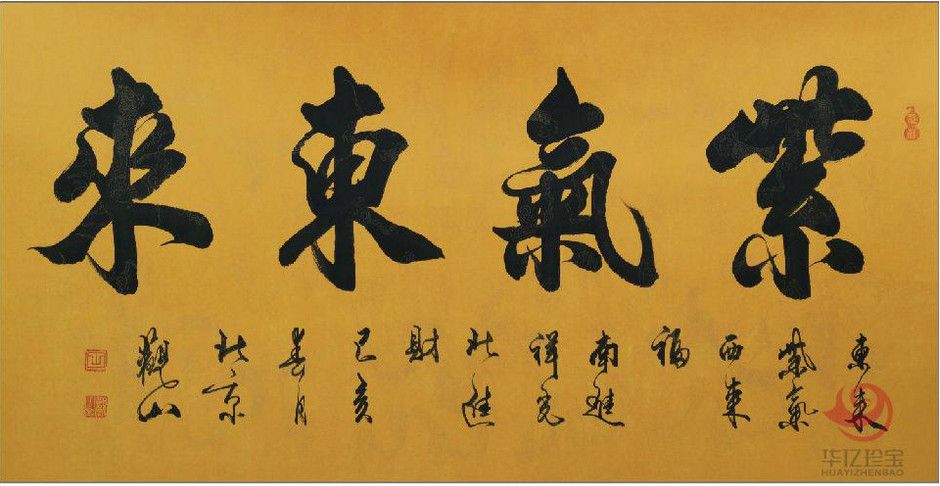 紫氣東來
東來
紫氣
西來
福
南進
祥光
北進
財
己亥
春月
北京
觀山
华亿珍宝
HUAYIZHENBAO